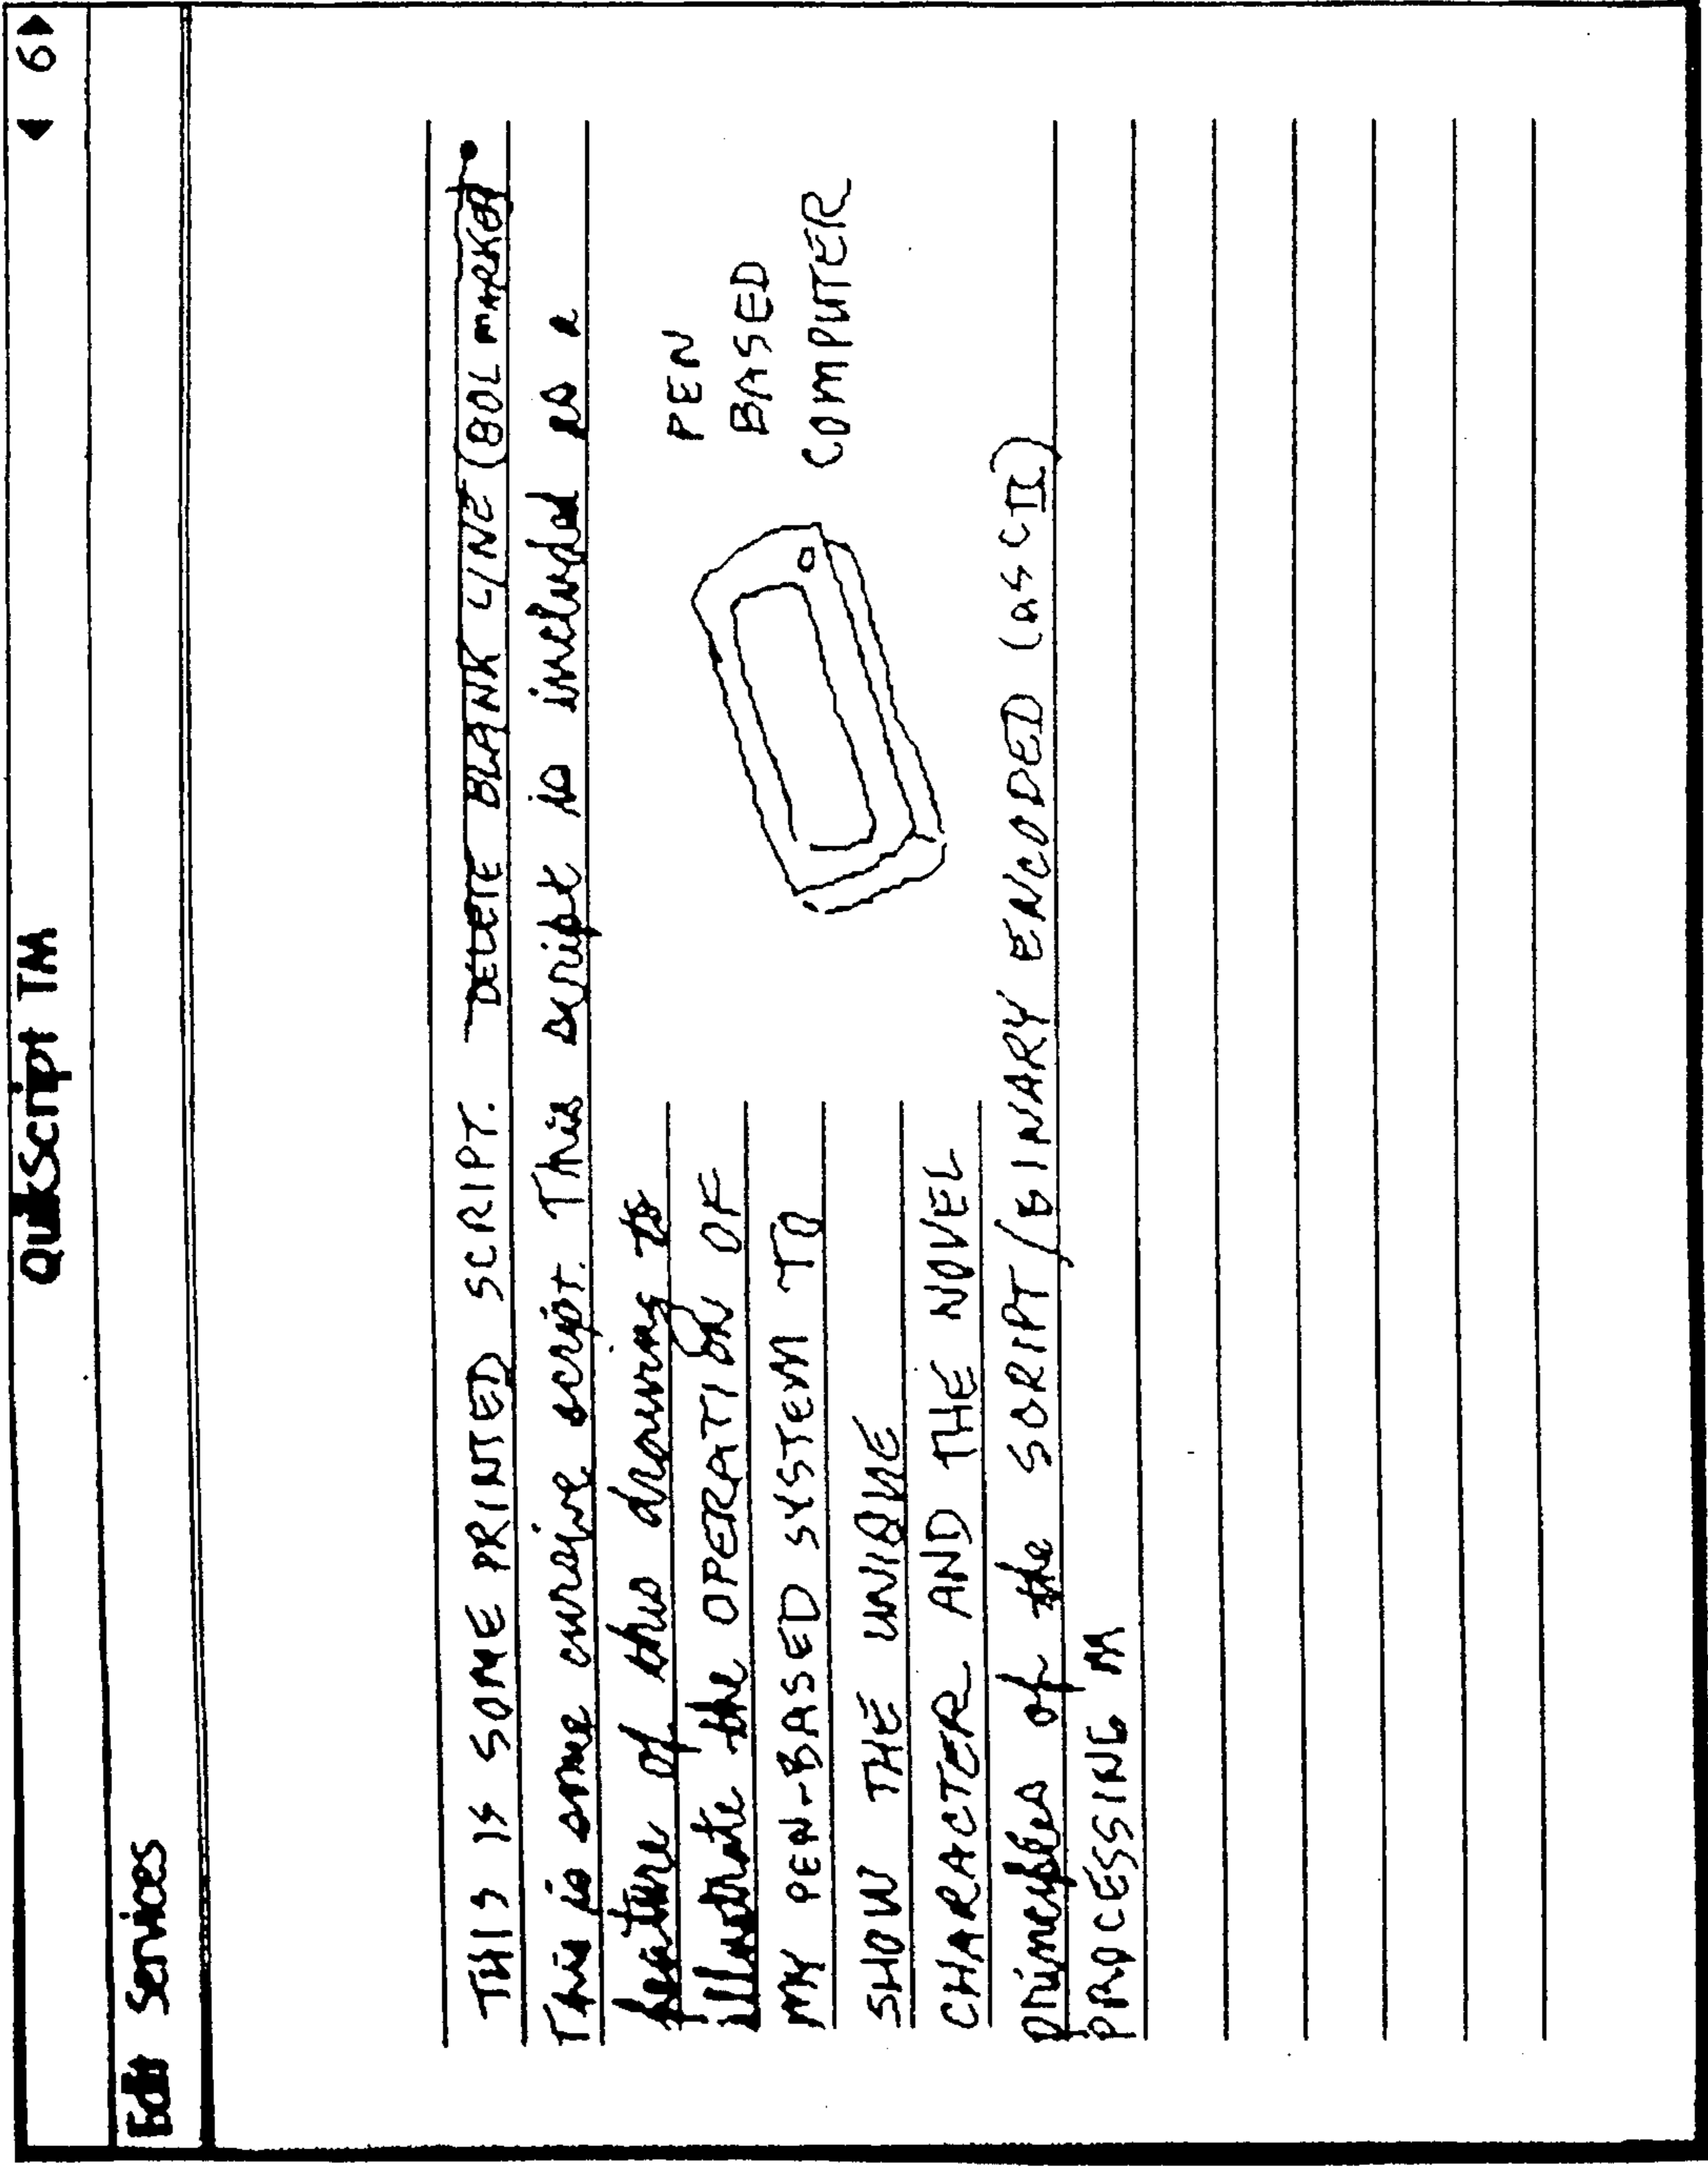 QuikScript TM
◀ 6 ▶
Edit Services
THIS IS SOME PRINTED SCRIPT. DELETE BLANK LINE (BOL MARKED
This is some cursive script. This script is included as a
feature of this drawing to
illustrate the OPERATION OF
MY PEN-BASED SYSTEM TO
SHOW THE UNIQUE
CHARACTER AND THE NOVEL
principles of the SCRIPT/BINARY ENCODED (ASCII)
PROCESSING
PEN
BASED
COMPUTER